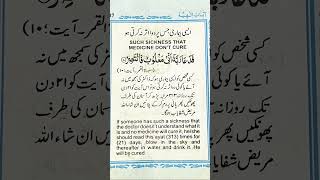 ایسی بیماری جس پر دوا اثر نہ کرتی ہو
SUCH SICKNESS THAT
MEDICINE DON'T CURE
فَدَعَا رَبَّهٗۤ اَنِّیْ مَغْلُوْبٌ فَانْتَصِرْ
القمر، آیت:۱۰)
کی سمجھ میں نہ
آئے یا کوئی دوا اثر نہ کرے ۲۱ دن
تک روزانہ ۳۱۳ مرتبہ آسمان کی طرف
پھونکیں پھر پانی پر دم ان شاء اللہ
مریض شفایاب ہوگا
If someone has such a sickness that
the doctor doesn't understand what it
is and no medicine will cure it, he/she
should read this ayat (313) times for
(21) days, blow in the sky and
thereafter in water and drink it. He
will by cured